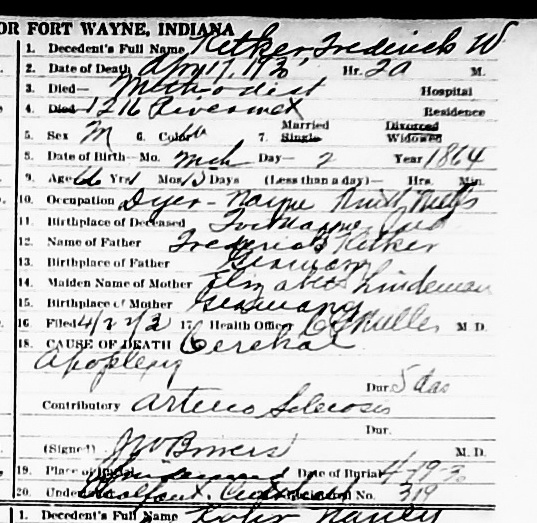 OR FORT WAYNE, INDIANA
1. Decedent's Full Name Retker Frederick W
2. Date of Death Apr 17, 193 Hr. 2a M.
3. Died— Methodist Hospital
4. Died— 1216 Rivermet Residence
Married Divorced
5. Sex M 6. Color W 7. Single Widowed
8. Date of Birth—Mo. Mch Day— 2 Year 1864
9. Age Yrs 1 Mos 15 Days (Less than a day)— Hrs. Min.
10. Occupation Dyer - Wayne Knitt Mills
11. Birthplace of Deceased Fort Wayne Ind
12. Name of Father Frederick Retker
13. Birthplace of Father Germany
14. Maiden Name of Mother Elizabeth Lindeman
15. Birthplace of Mother Germany
16. Filed 4/22/3 17. Health Officer Muller M. D.
18. CAUSE OF DEATH Cerebral
Apoplexy
Dur. 5 das
Contributory Arterio Sclerosis
Dur.
(Signed) J W Bowers M. D.
19. Place of Burial Lindenwood Date of Burial 4-19-3
20. Under No. 319
1. Decedent's Full Name Nancy